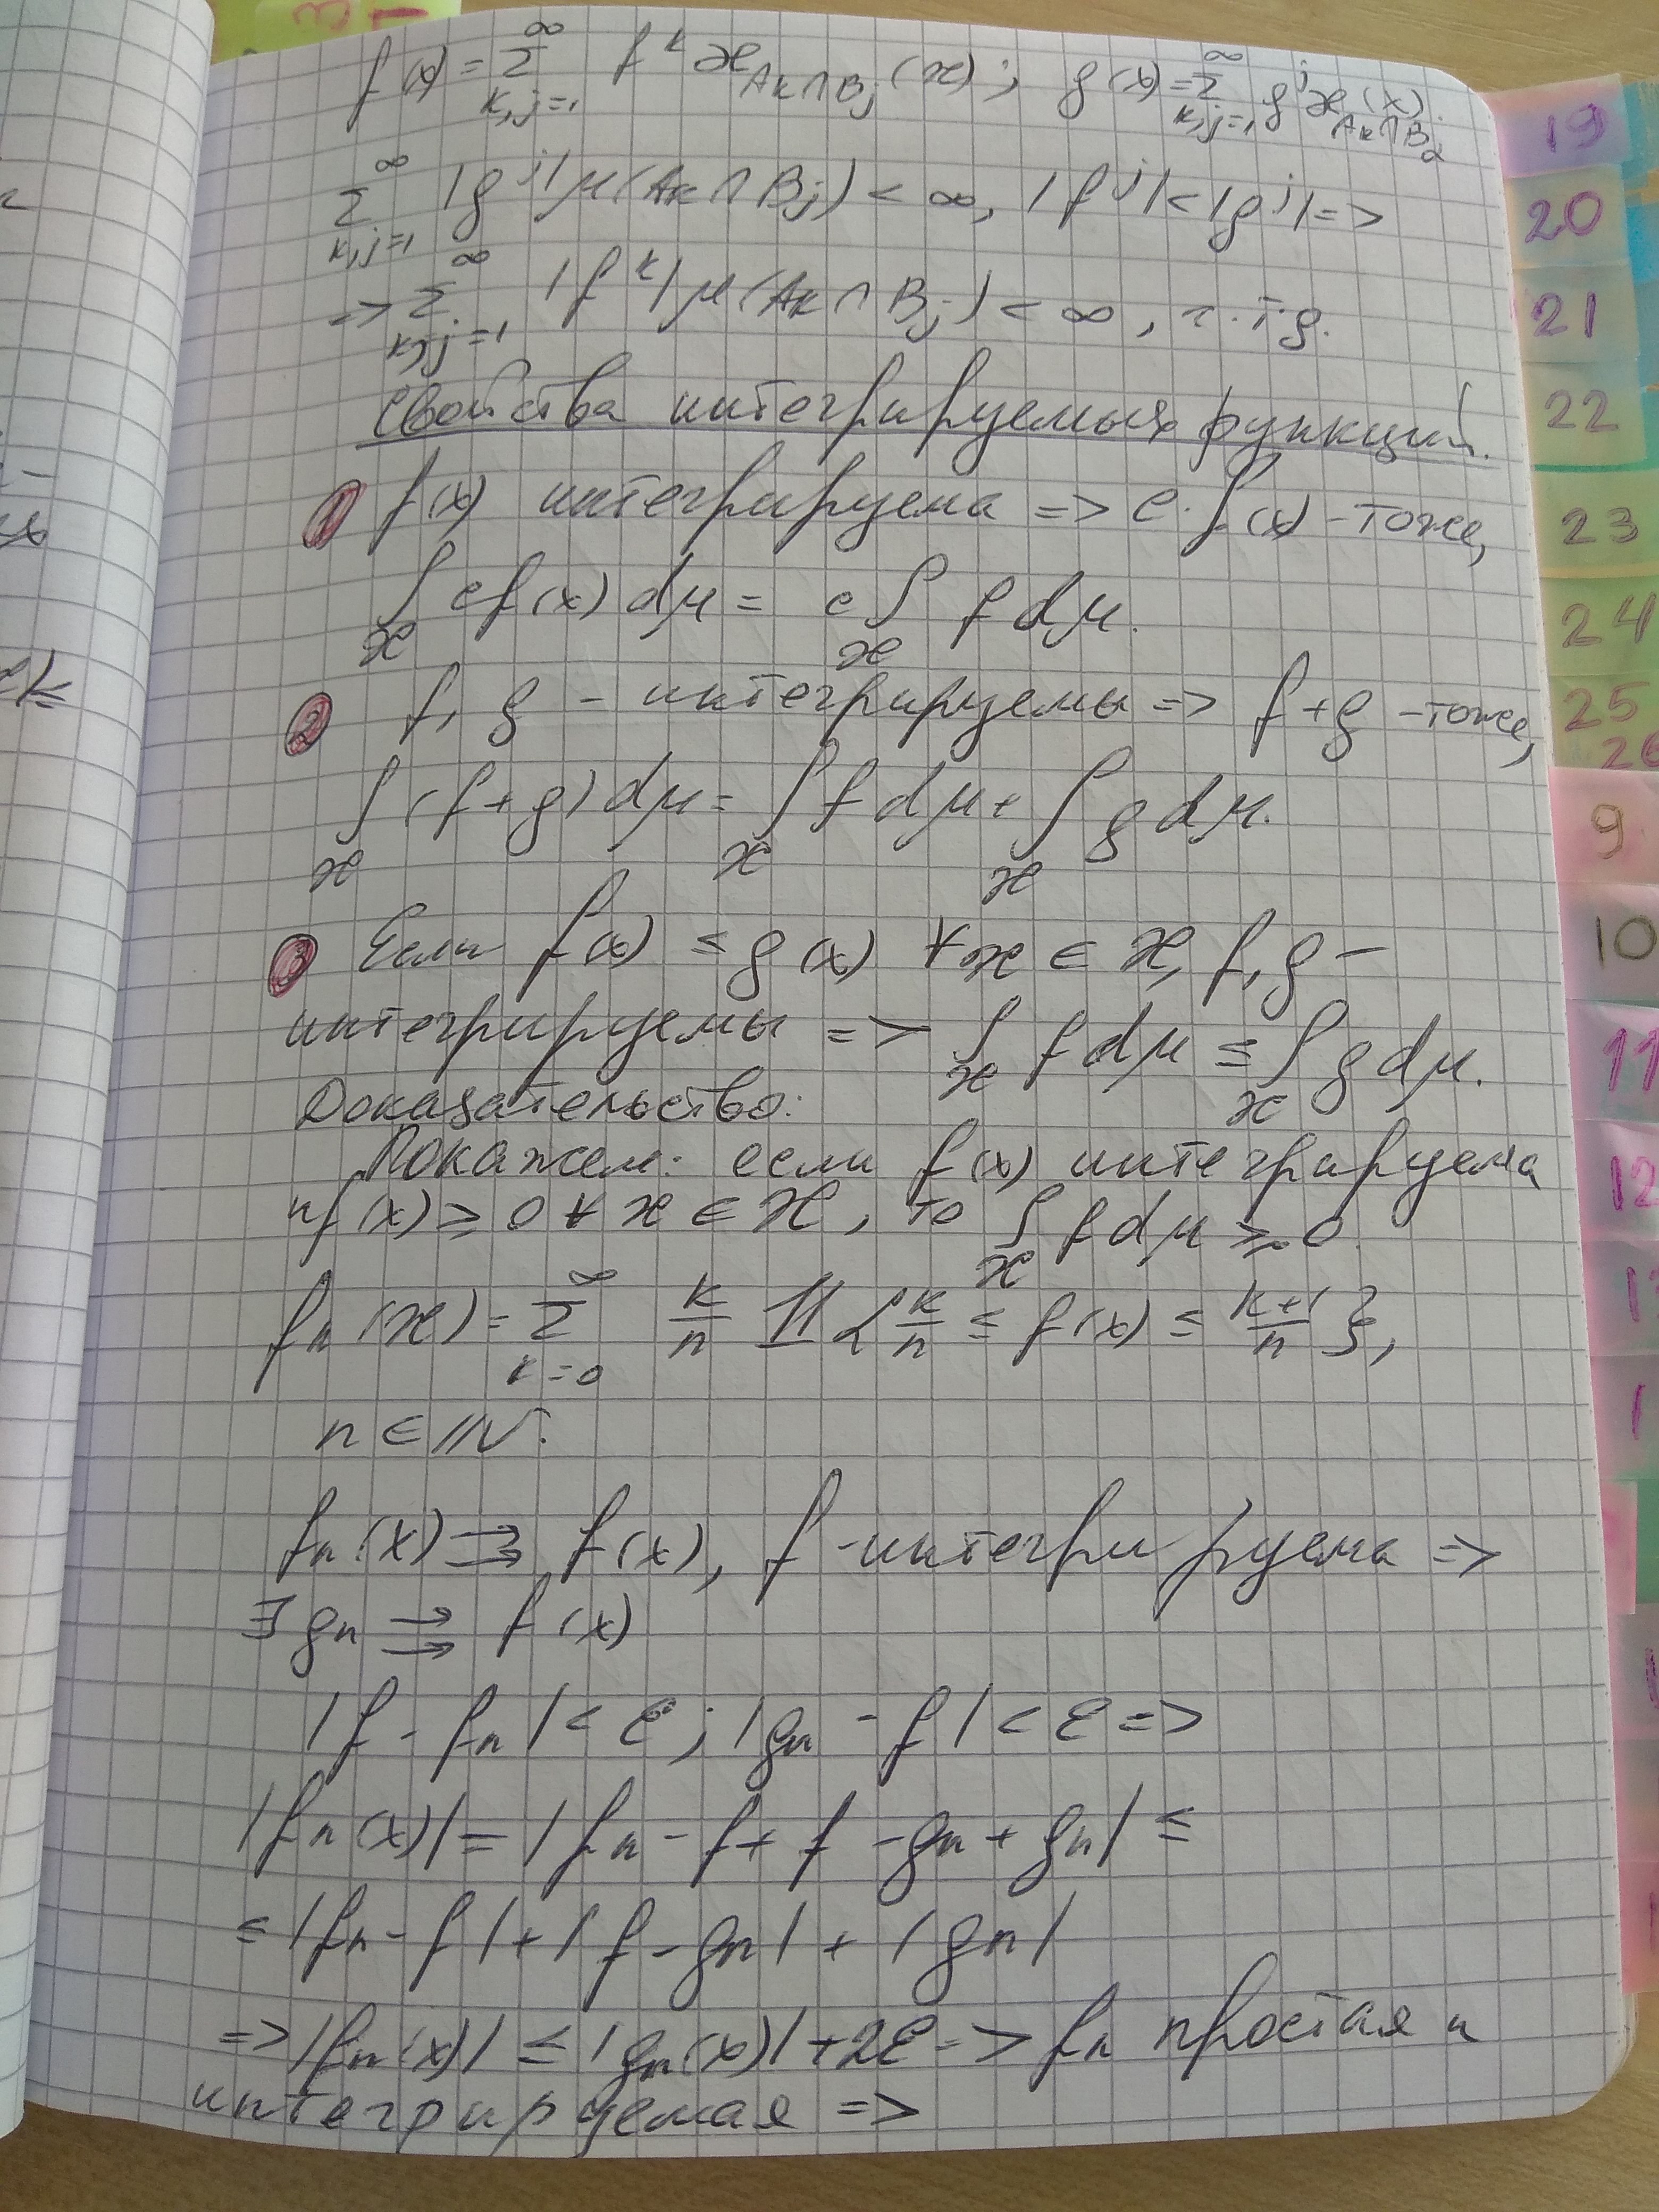 f(x) = Σ_{k,j=1}^∞ f^k æ_{Ak∩Bj}(x); g(x) = Σ_{k,j=1}^∞ g^j æ_{Ak∩B}(x).
Σ_{k,j=1}^∞ |g^j| μ(Ak∩Bj) < ∞, |f^j| < |g^j| =>
=> Σ_{k,j=1}^∞ |f^k| μ(Ak∩Bj) < ∞, ч.т.д.
Свойства интегрируемых функций.
1 f(x) интегрируема => c·f(x) - тоже,
∫_æ cf(x)dμ = c∫_æ f dμ.
2 f, g - интегрируемы => f+g - тоже,
∫_æ (f+g)dμ = ∫_æ f dμ + ∫_æ g dμ.
3 Если f(x) ≤ g(x) ∀x ∈ æ, f, g -
интегрируемы => ∫_æ f dμ ≤ ∫_æ g dμ.
Доказательство:
Покажем: если f(x) интегрируема
и f(x) ≥ 0 ∀ x ∈ æ, то ∫_æ f dμ ≥ 0.
f_n(x) = Σ_{k=0}^∞ k/n 𝟙{k/n ≤ f(x) ≤ (k+1)/n},
n ∈ ℕ.
f_n(x) ⇉ f(x), f - интегрируема =>
∃ g_n ⇉ f(x)
|f - f_n| < ε; |g_n - f| < ε =>
|f_n(x)| = |f_n - f + f - g_n + g_n| ≤
≤ |f_n - f| + |f - g_n| + |g_n|
=> |f_n(x)| ≤ |g_n(x)| + 2ε => f_n простая и
интегрируемая =>
19
20
21
22
23
24
25
26
9
10
11
12